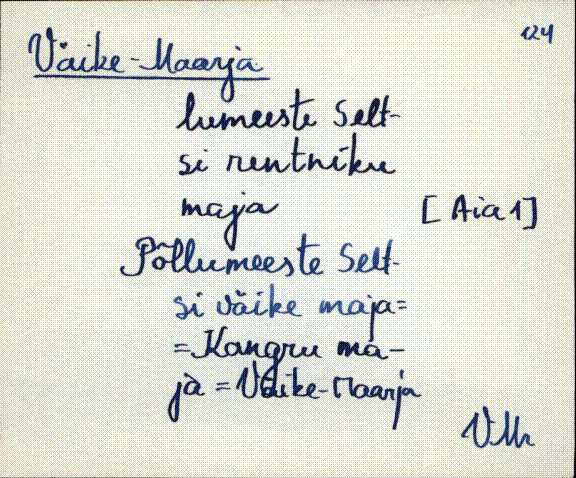 124
Väike-Maarja
lumeeste Selt-
si rentniku
maja [Aia 1]
Põllumeeste Selt-
si väike maja=
=Kangru ma-
ja =Väike-Maarja
VMr